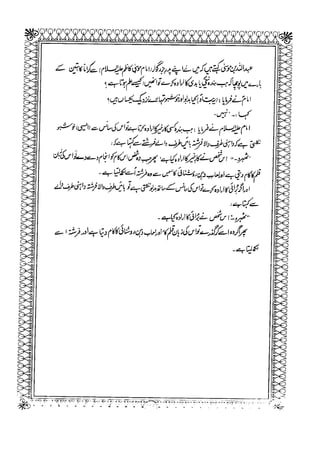 عبداللہ بن موسیٰ کہتے ہیں کہ میں نے اپنے پدر بزرگوار امام موسیٰ کاظم علیہ السلام سے کراماً کاتبین کے
بارے میں پوچھا کہ جب بندہ نیکی یا بدی کا ارادہ کرے تو انھیں کیسے علم ہوتا ہے؟
امام نے فرمایا
کہا : ۔ نہیں۔
امام علیہ السلام نے فرمایا : جب بندہ کسی کار خیر کا ارادہ کرتا ہے تو اس کی سانس سے ایسی خوشبو
نکلتی ہے کہ داہنی طرف والا فرشتہ بائیں طرف والے فرشتے سے کہتا ہے کہ :
"ٹھہرو۔" اس شخص نے کار خیر کا ارادہ کیا ہے، پھر جب وہ شخص اس کام کو انجام دے دے تو اس کی زبان
قلم کا کام دیتی ہے اور لعاب دہن روشنائی کا جس سے وہ فرشتہ اسے لکھ لیتا ہے۔
اور اگر برائی کا ارادہ کرے تو اس کی سانس کے ساتھ بدبو نکلتی ہے تو بائیں طرف والا فرشتہ داہنی طرف والے
سے کہتا ہے :
"ٹھہرو۔" اس شخص نے برائی کا ارادہ کیا ہے۔
پھر اگر وہ اسے کر گذرے تو اس کی زبان قلم کا اور لعاب دہن روشنائی کا کام دیتا ہے اور فرشتہ اسے
لکھ لیتا ہے۔